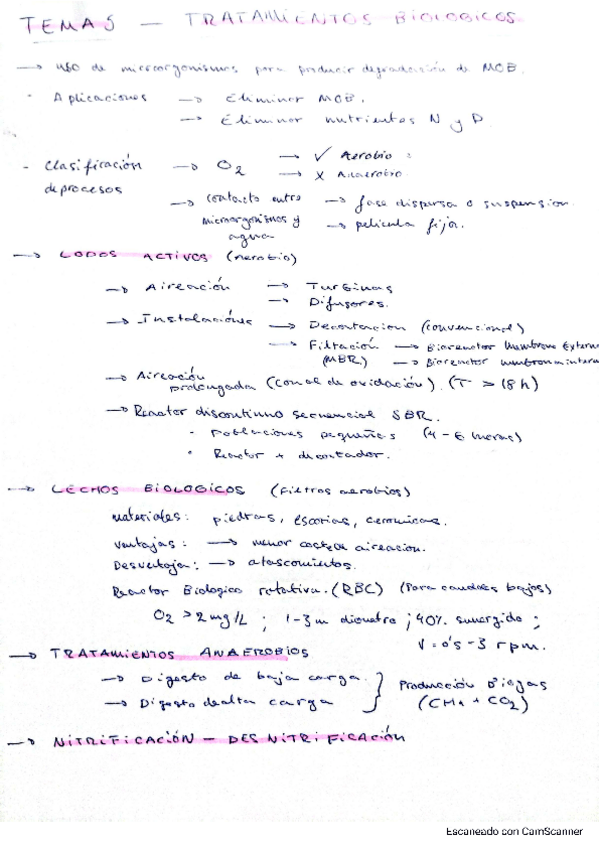 TEMA 5 — TRATAMIENTOS BIOLOGICOS
→ uso de microorganismos para producir degradación de MOB.
· Aplicaciones → Eliminar MOB.
→ Eliminar nutrientes N y P.
- Clasificación de procesos → O2 → ✓ Aerobio
→ X Anaerobio
→ contacto entre microorganismos y agua → fase dispersa o suspension.
→ película fija.
→ LODOS ACTIVOS (Aerobio)
→ Aireación → Turbinas
→ Difusores.
→ Instalaciones → Decantacion (convencional)
→ Filtración (MBR) → Biorreactor Membrana Extern
→ Biorreactor membrana intern
→ Aireación prolongada (canal de oxidación). (T > 18h)
→ Reactor discontinuo secuencial SBR.
· Poblaciones pequeñas (4-6 horas)
· Reactor + decantador.
→ LECHOS BIOLOGICOS (Filtros aerobios)
materiales: piedras, escorias, ceramicas.
ventajas: → menor coste aireacion.
Desventaja: → atascamientos.
Reactor Biologico rotativo. (RBC) (Para caudales bajos)
O2 > 2 mg/L ; 1-3 m diametro ; 40% sumergido ;
V = 0'5 - 3 rpm.
→ TRATAMIENTOS ANAEROBIOS
→ Digesto de baja carga. } Producción Biogas
→ Digesto de alta carga } (CH4 + CO2)
→ NITRIFICACIÓN — DESNITRIFICACIÓN
Escaneado con CamScanner